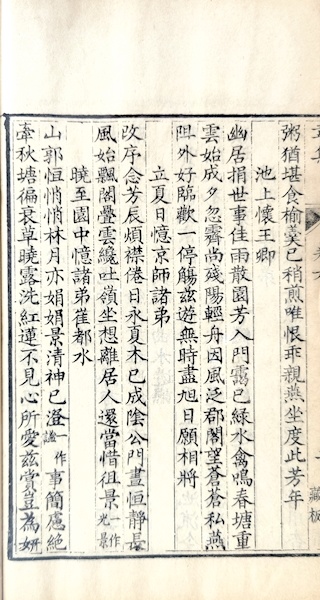 粥猶堪食榆羹已稍煎唯恨乖親燕坐度此芳年
池上懷王卿
幽居捐世事佳雨散園芳入門靄已綠水禽鳴春塘重
雲始成夕忽霽尚殘陽輕舟因風泛郡閣望蒼蒼私燕
阻外好臨歡一停觴茲遊無時盡旭日願相將
立夏日憶京師諸弟
改序念芳辰煩襟倦日永夏木已成陰公門晝恒靜長
風始飄閣疊雲纔吐嶺坐想離居人還當惜徂景一作光景
曉至園中憶諸弟崔都水
山郭恒悄悄林月亦娟娟景清神已澄一作謐事簡慮絕
牽秋塘徧衰草曉露洗紅蓮不見心所愛茲賞豈為妍